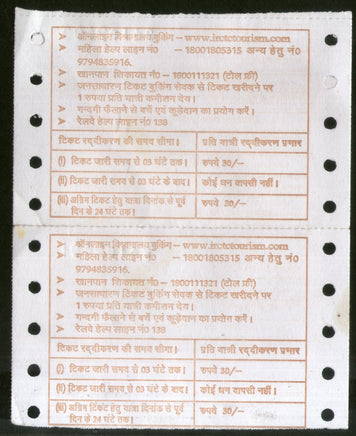 ➤ ऑनलाइन विश्रामालय बुकिंग – www.irctctourism.com
➤ महिला हेल्प लाइन नं0 – 18001805315 अन्य हेतु नं0
9794835916.
➤ खानपान शिकायत नं0 – 1800111321 (टोल फ्री)
➤ जनसाधारण टिकट बुकिंग सेवक से टिकट खरीदने पर
1 रुपया प्रति यात्री कमीशन देय।
➤ गन्दगी फैलाने से बचें एवं कूड़ेदान का प्रयोग करें।
➤ रेलवे हेल्प लाइन नं0 138
टिकट रद्दीकरण की समय सीमा। प्रति यात्री रद्दीकरण प्रभार
(i) टिकट जारी समय से 03 घंटे तक। रुपये 30/–
(ii) टिकट जारी समय से 03 घंटे के बाद। कोई धन वापसी नहीं।
(iii) अग्रिम टिकट हेतु यात्रा दिनांक से पूर्व रुपये 30/–
दिन के 24 घंटे तक।
➤ ऑनलाइन विश्रामालय बुकिंग – www.irctctourism.com
➤ महिला हेल्प लाइन नं0 – 18001805315 अन्य हेतु नं0
9794835916.
➤ खानपान शिकायत नं0 – 1800111321 (टोल फ्री)
➤ जनसाधारण टिकट बुकिंग सेवक से टिकट खरीदने पर
1 रुपया प्रति यात्री कमीशन देय।
➤ गन्दगी फैलाने से बचें एवं कूड़ेदान का प्रयोग करें।
➤ रेलवे हेल्प लाइन नं0 138
टिकट रद्दीकरण की समय सीमा। प्रति यात्री रद्दीकरण प्रभार
(i) टिकट जारी समय से 03 घंटे तक। रुपये 30/–
(ii) टिकट जारी समय से 03 घंटे के बाद। कोई धन वापसी नहीं।
(iii) अग्रिम टिकट हेतु यात्रा दिनांक से पूर्व रुपये 30/–
दिन के 24 घंटे तक।